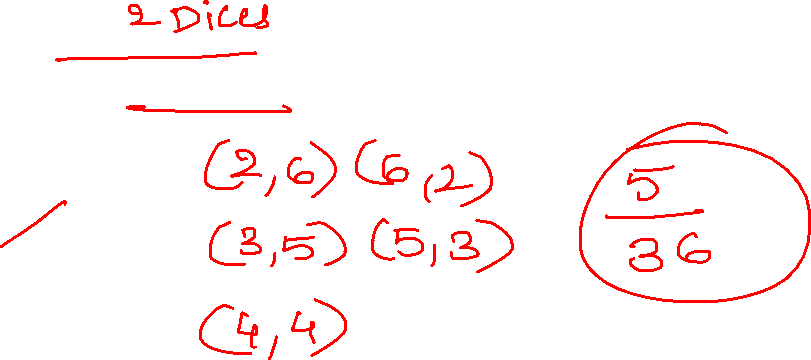 2 Dices
(2,6) (6,2)
(3,5) (5,3)
(4,4)
5
36